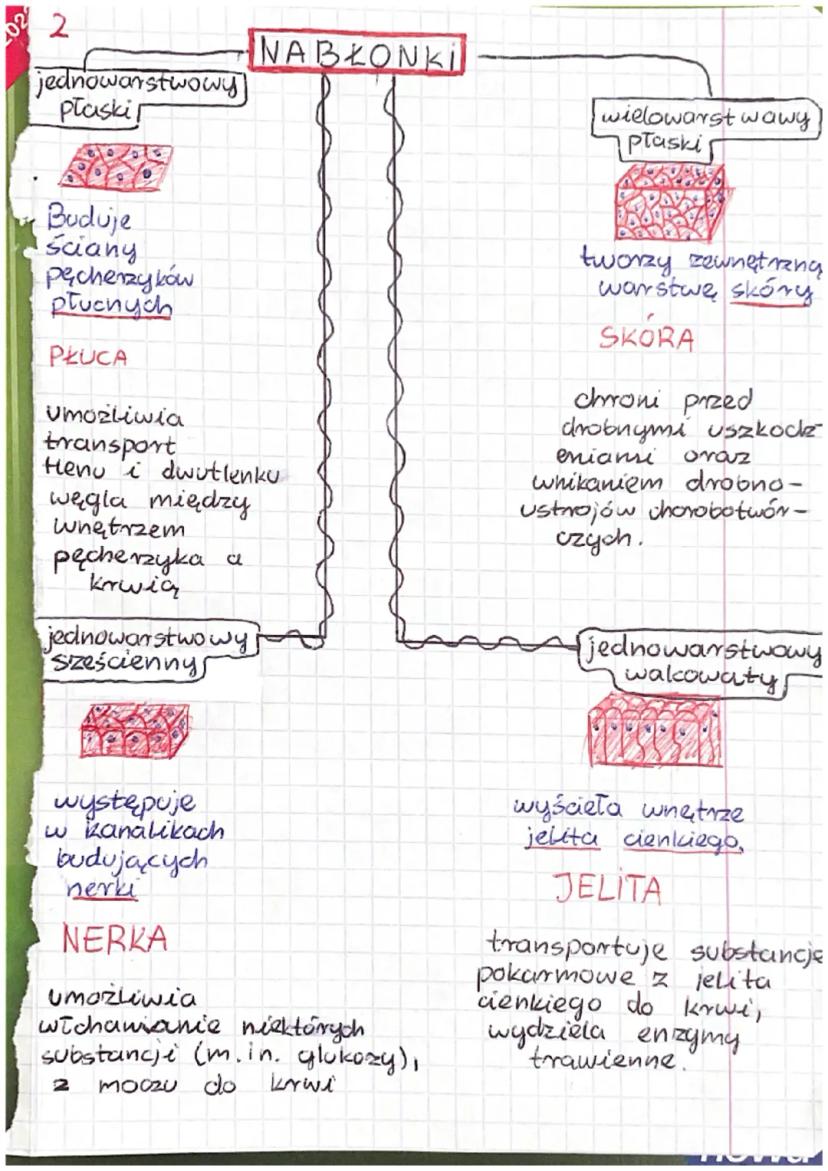 2
NABŁONKI
jednowarstwowy
płaski
Buduje
ściany
pęcherzyków
płucnych
PŁUCA
umożliwia
transport
tlenu i dwutlenku
węgla między
wnętrzem
pęcherzyka a
krwią
wielowarstwawy
płaski
tworzy zewnętrzną
warstwę skóry
SKÓRA
chroni przed
drobnymi uszkodz
eniami oraz
wnikaniem drobno-
ustrojów chorobotwór-
czych.
jednowarstwowy
sześcienny
występuje
w kanalikach
budujących
nerki
NERKA
umożliwia
wchłanianie niektórych
substancji (m.in. glukozy),
z moczu do krwi
jednowarstwowy
walcowaty
wyścieła wnętrze
jelita cienkiego.
JELITA
transportuje substancje
pokarmowe z jelita
cienkiego do krwi,
wydziela enzymy
trawienne.